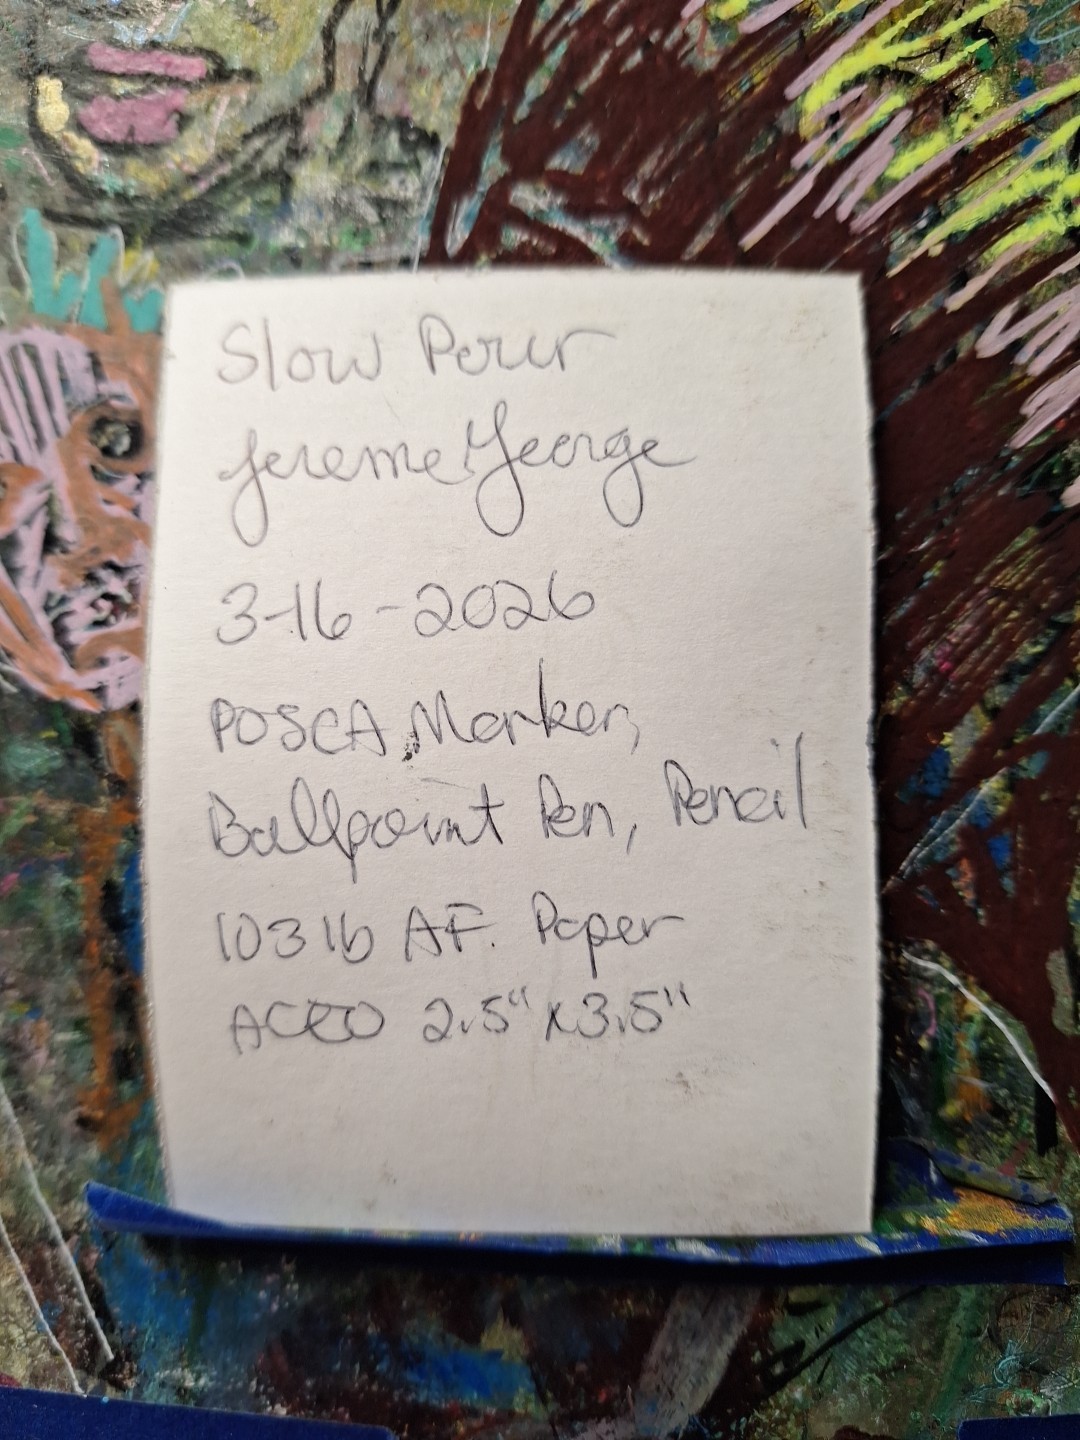 Slow Pour
Jereme George
3-16-2026
POSCA, Marker,
Ballpoint Pen, Pencil
103 lb AF. Paper
ACEO 2.5" x 3.5"